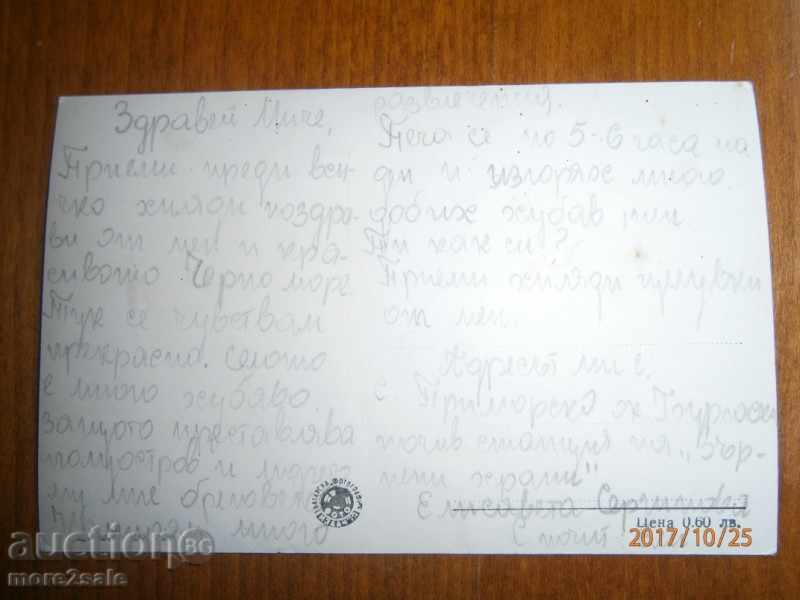 Здравей Миче,
Приеми преди вси-
чко хиляди поздра-
ви от мен и кра-
сивото Черно море
Тук се чувствам
прекрасно. Селото
е много хубаво
защото преставлява
полуостров и
много
развлечения.
Печа се по 5-6 часа на
и изгорях много.
добих хубав
Ти как си?
Приеми хиляди целувки
от мен.
Адресът ми е,
с. Приморско ок. Бургаски
почив станция на "Чер-
вени храни"
Елисавета
Цена 0.60 лв.
2017/10/25
auction
more2sale